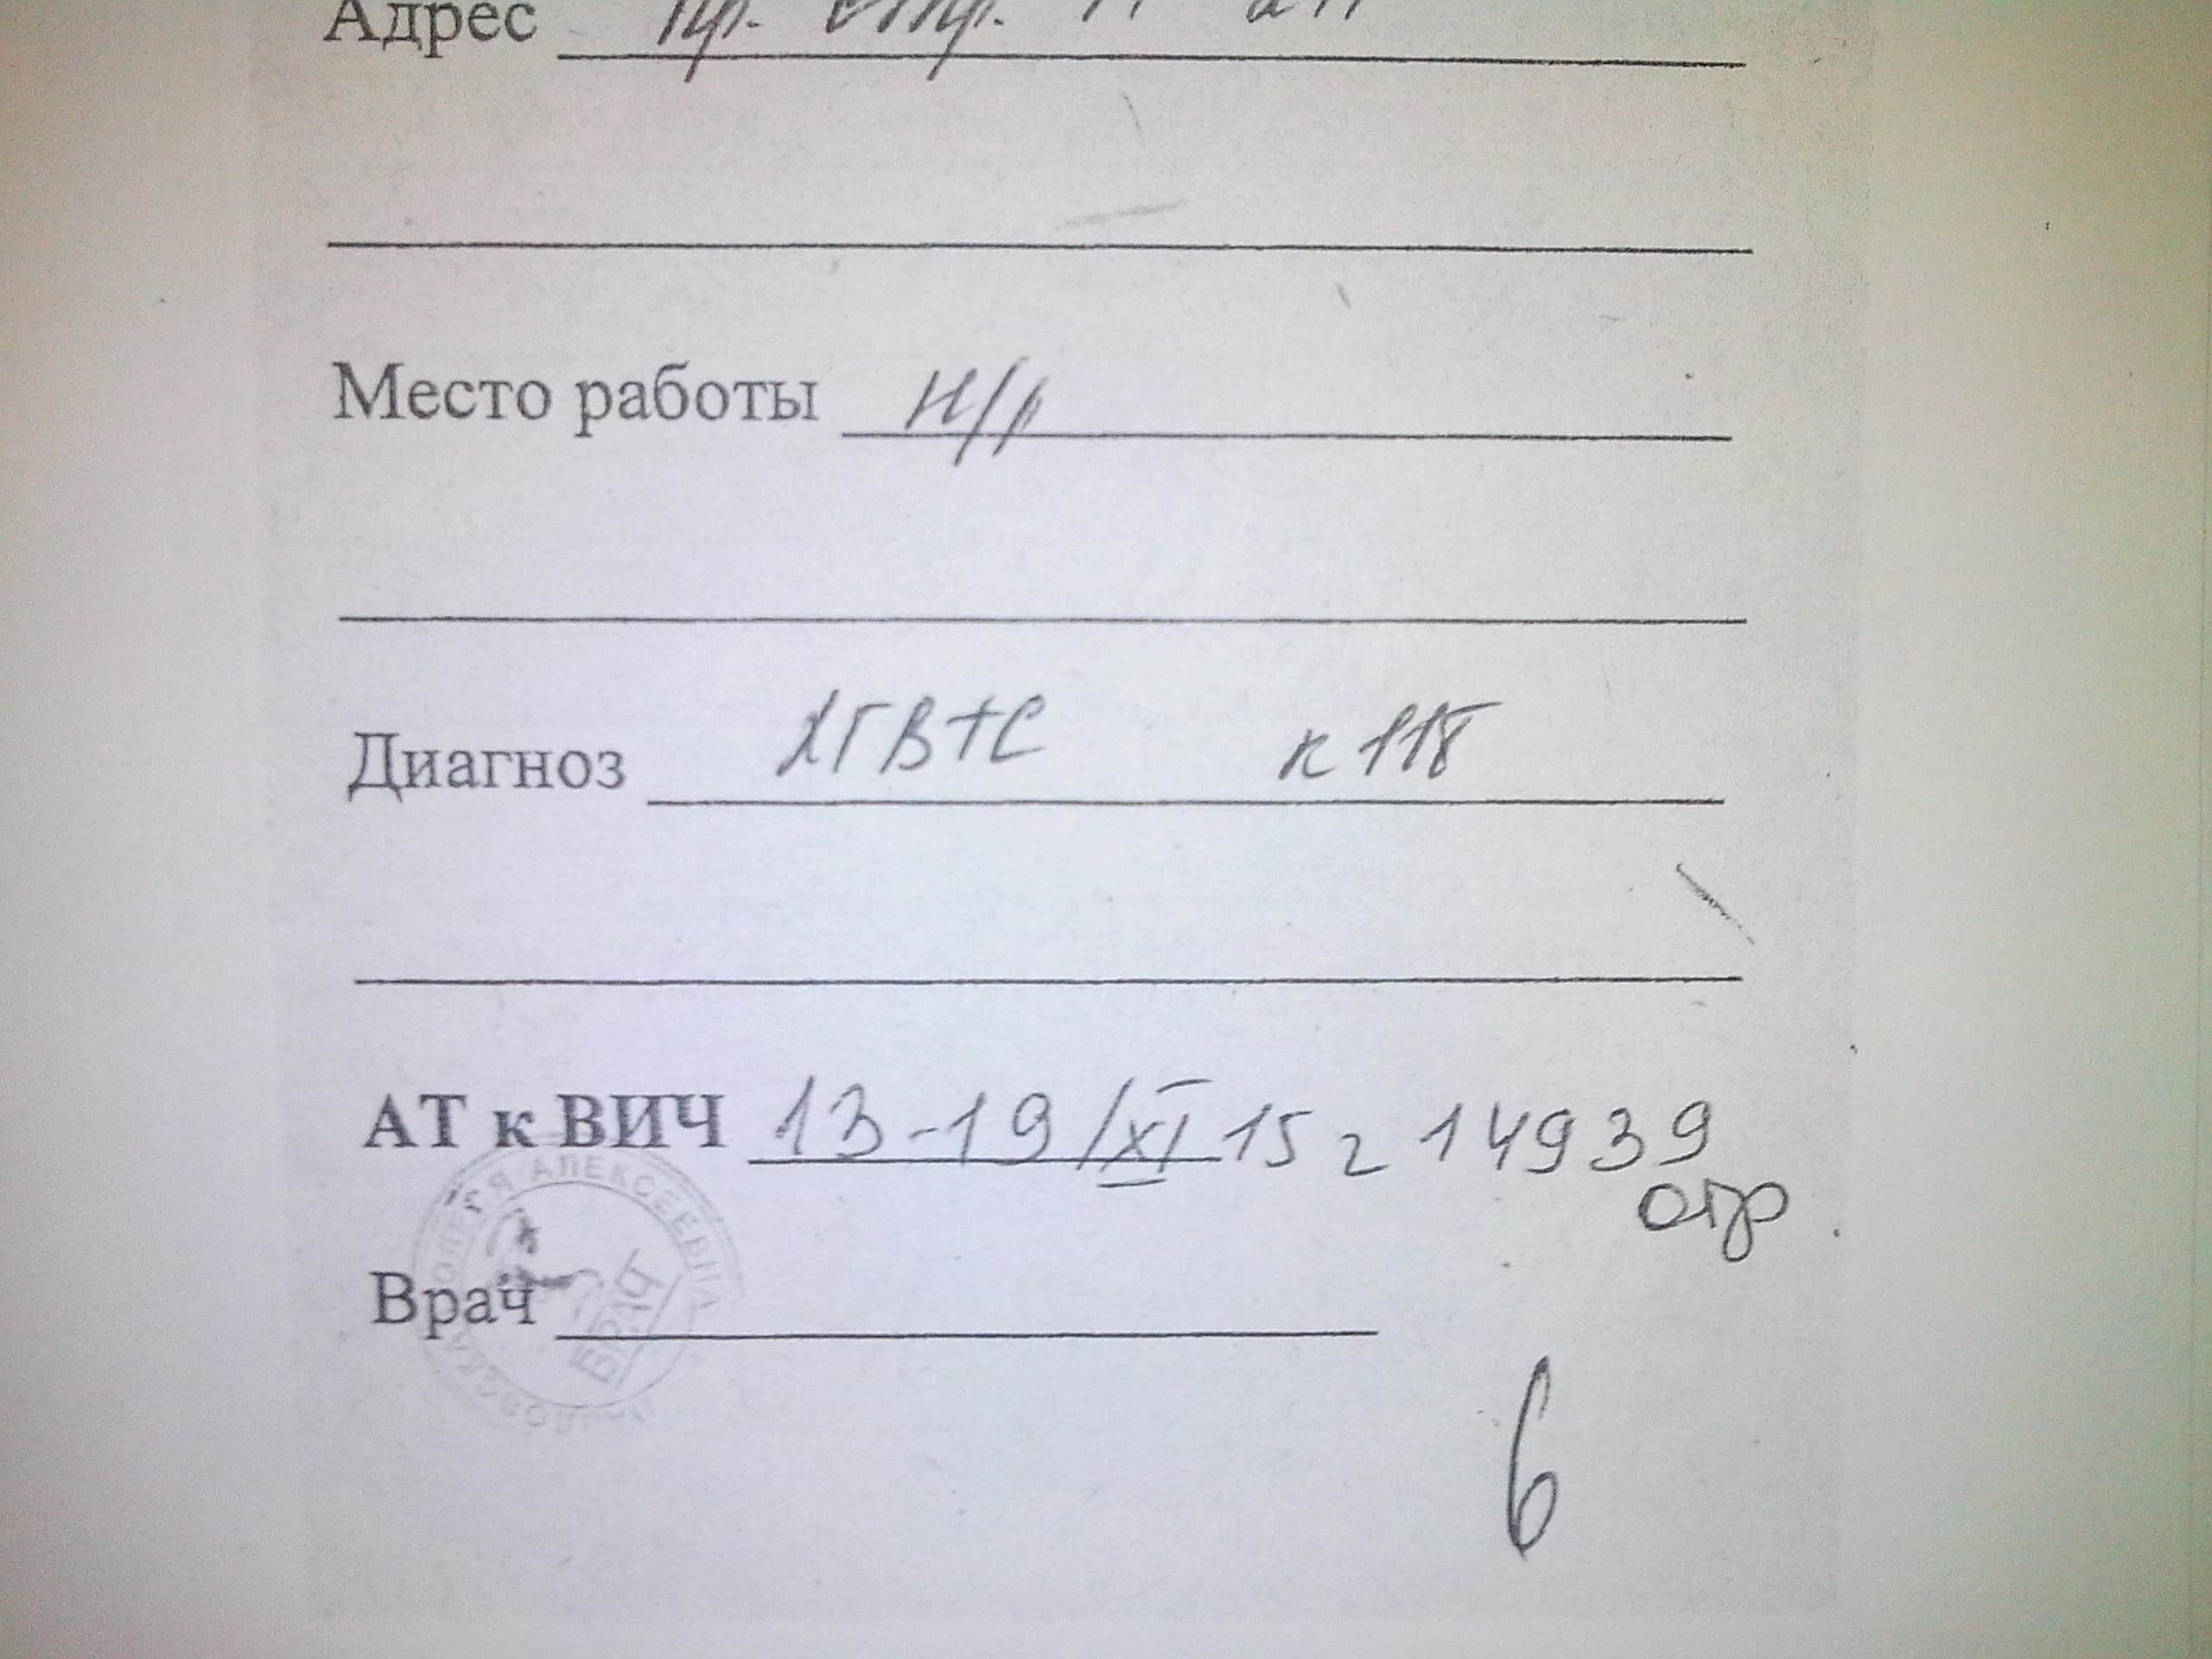 Адрес пр. Стр.
Место работы н/р
Диагноз ХГВ+С к 118
АТ к ВИЧ 13-19/XI 15 г 14939
отр.
АЛЕКСЕЕВНА
Врач
ВРАЧ
6